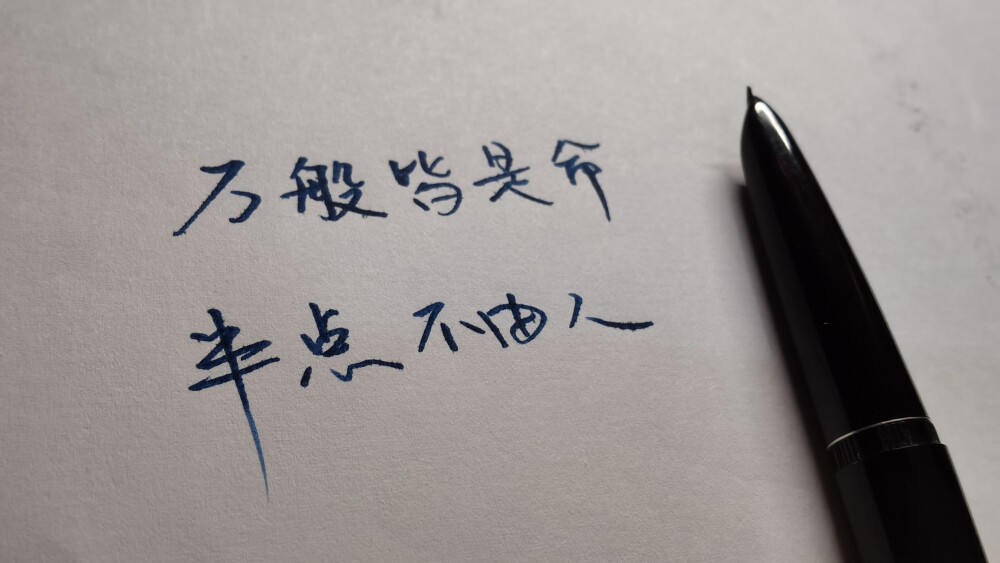 万般皆是命
半点不由人